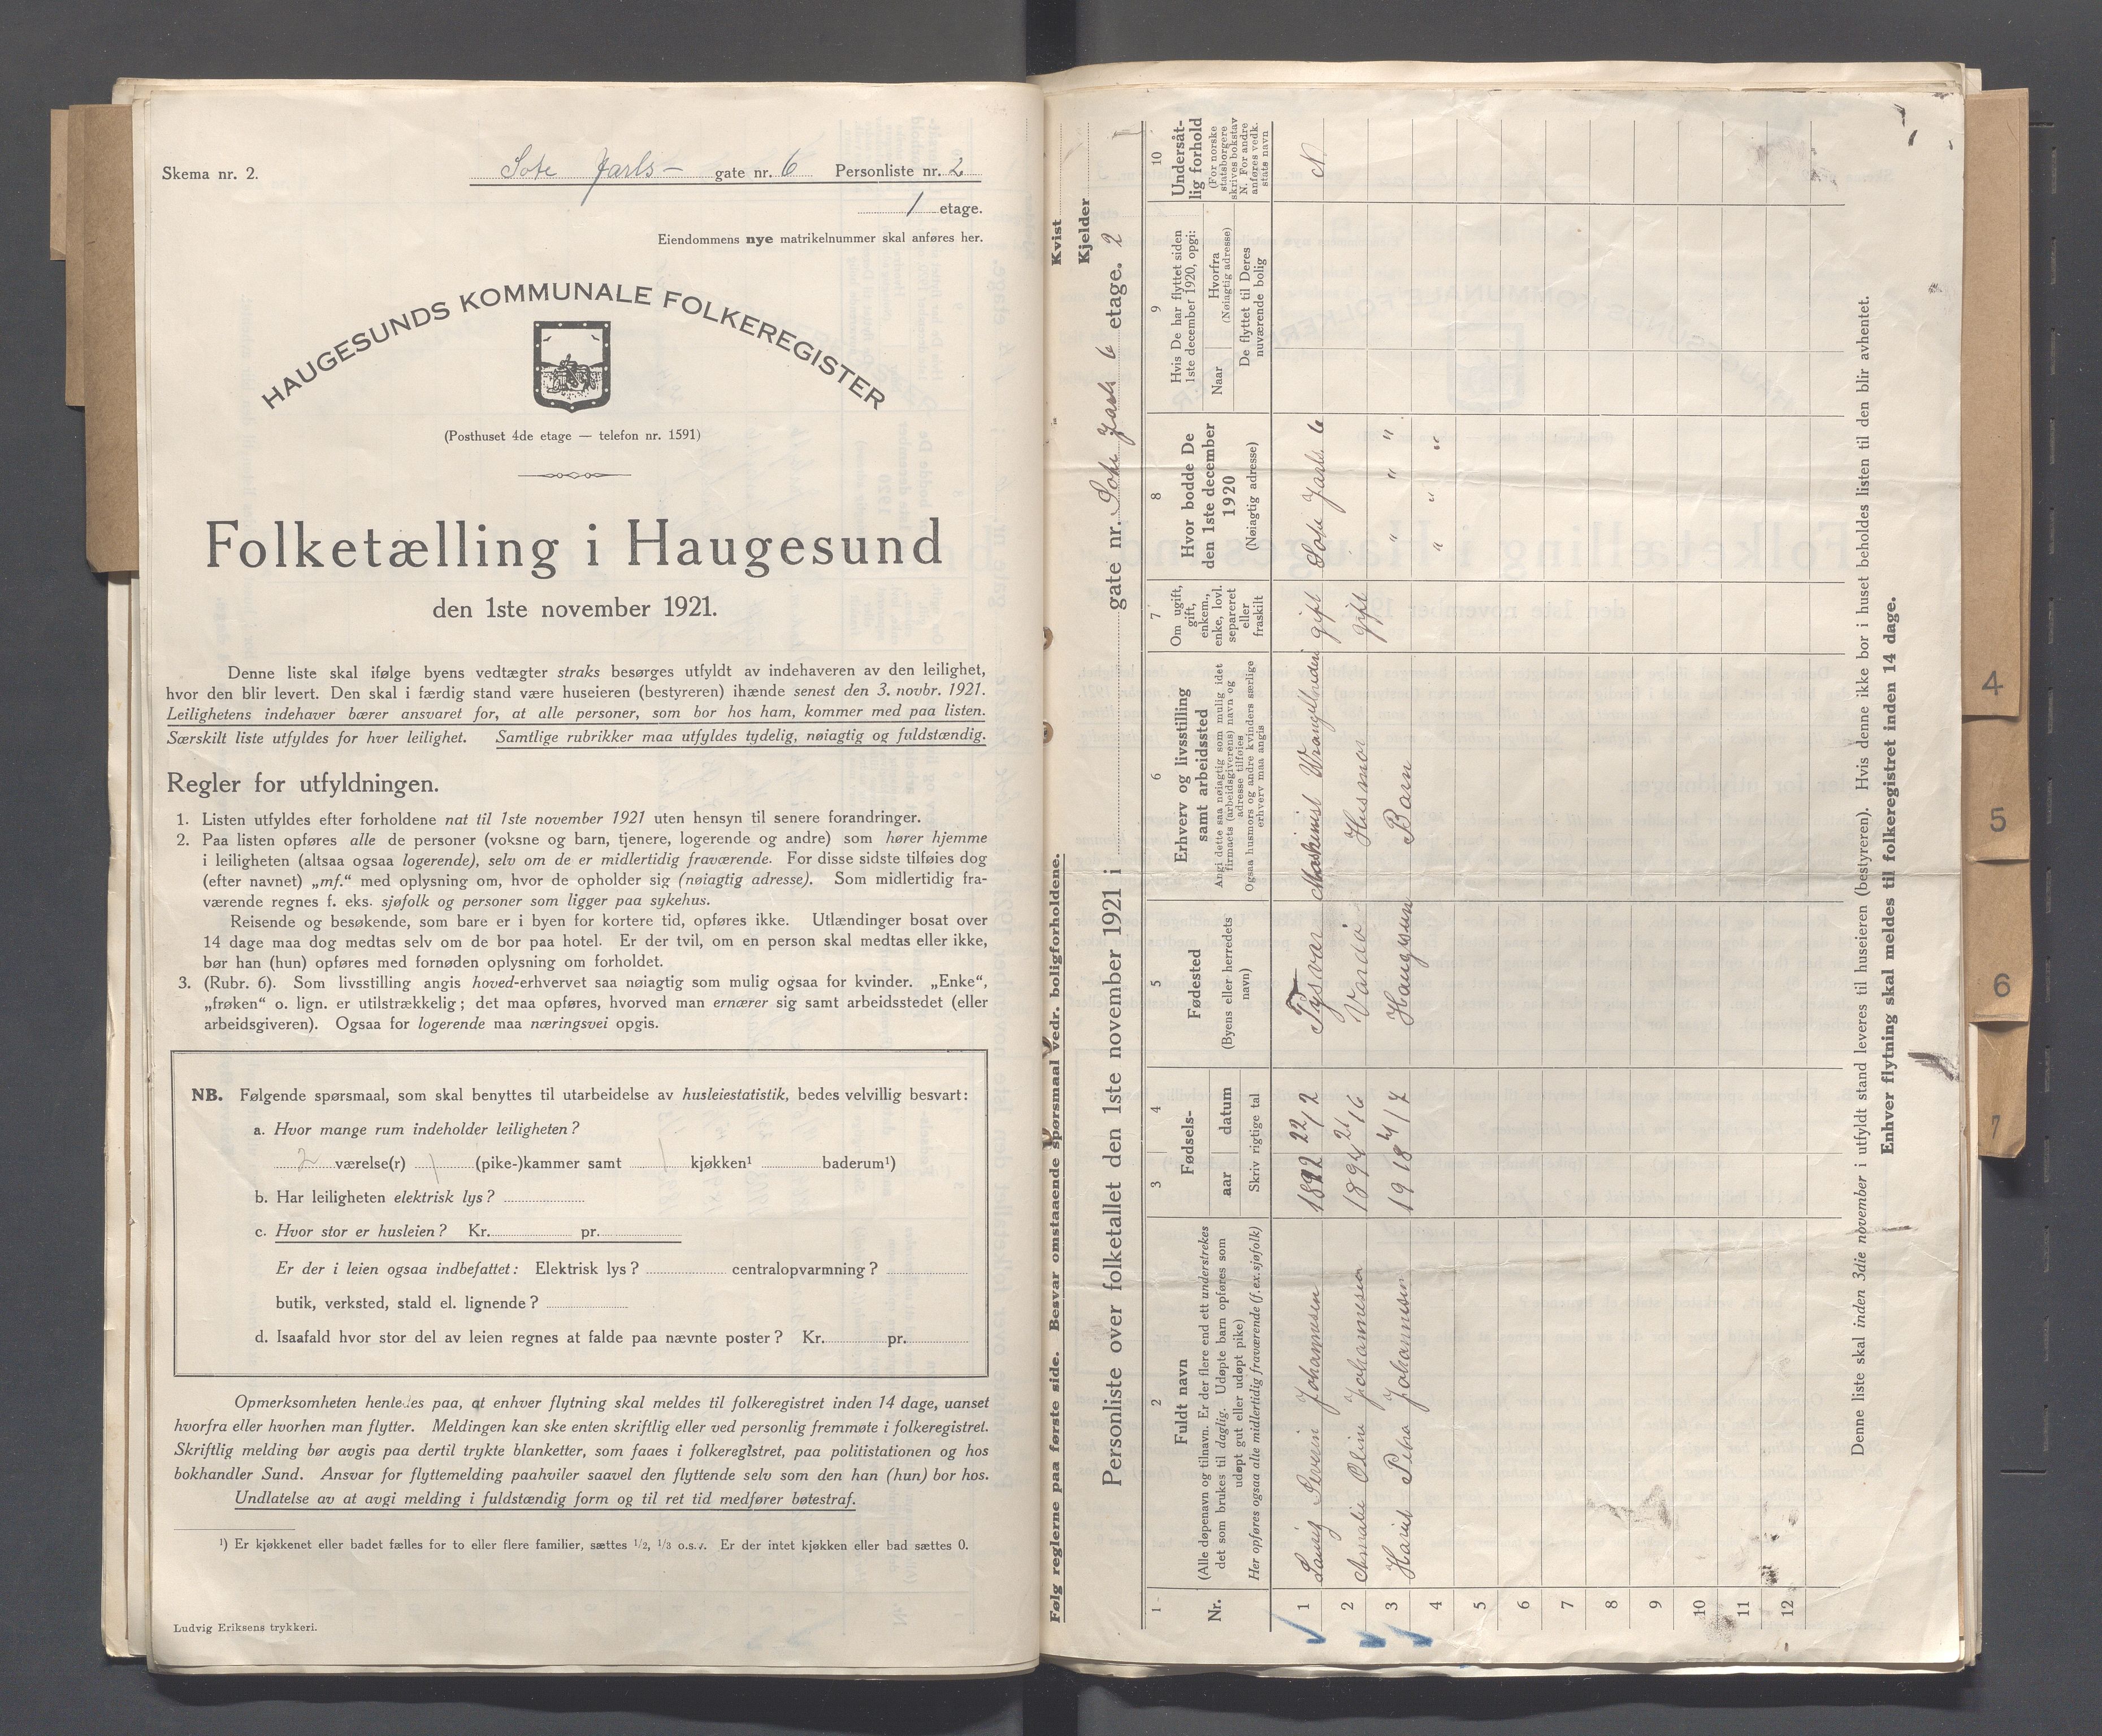 Skema nr. 2.
Sote Jarls - gate nr. 6 Personliste nr. 2
1 etage.
Eiendommens nye matrikelnummer skal anføres her.
HAUGESUNDS KOMMUNALE FOLKEREGISTER
(Posthuset 4de etage — telefon nr. 1591)
Folketælling i Haugesund
den 1ste november 1921.
Denne liste skal ifølge byens vedtægter straks besørges utfyldt av indehaveren av den leilighet,
hvor den blir levert. Den skal i færdig stand være huseieren (bestyreren) ihænde senest den 3. novbr. 1921.
Leilighetens indehaver bærer ansvaret for, at alle personer, som bor hos ham, kommer med paa listen.
Særskilt liste utfyldes for hver leilighet. Samtlige rubrikker maa utfyldes tydelig, nøiagtig og fuldstændig.
Regler for utfyldningen.
1. Listen utfyldes efter forholdene nat til 1ste november 1921 uten hensyn til senere forandringer.
2. Paa listen opføres alle de personer (voksne og barn, tjenere, logerende og andre) som hører hjemme
i leiligheten (altsaa ogsaa logerende), selv om de er midlertidig fraværende. For disse sidste tilføies dog
(efter navnet) „mf.“ med oplysning om, hvor de opholder sig (nøiagtig adresse). Som midlertidig fra-
værende regnes f. eks. sjøfolk og personer som ligger paa sykehus.
Reisende og besøkende, som bare er i byen for kortere tid, opføres ikke. Utlændinger bosat over
14 dage maa dog medtas selv om de bor paa hotel. Er der tvil, om en person skal medtas eller ikke,
bør han (hun) opføres med fornøden oplysning om forholdet.
3. (Rubr. 6). Som livsstilling angis hoved-erhvervet saa nøiagtig som mulig ogsaa for kvinder. „Enke“,
„frøken“ o. lign. er utilstrækkelig; det maa opføres, hvorved man ernærer sig samt arbeidsstedet (eller
arbeidsgiveren). Ogsaa for logerende maa næringsvei opgis.
NB. Følgende spørsmaal, som skal benyttes til utarbeidelse av husleiestatistik, bedes velvillig besvart:
a. Hvor mange rum indeholder leiligheten?
2 værelse(r) 1 (pike-)kammer samt 1 kjøkken¹ baderum¹)
b. Har leiligheten elektrisk lys?
c. Hvor stor er husleien? Kr. pr.
Er der i leien ogsaa indbefattet: Elektrisk lys? centralopvarmning?
butik, verksted, stald el. lignende?
d. Isaafald hvor stor del av leien regnes at falde paa nævnte poster? Kr. pr.
Opmerksomheten henledes paa, at enhver flytning skal meldes til folkeregistret inden 14 dage, uanset
hvorfra eller hvorhen man flytter. Meldingen kan ske enten skriftlig eller ved personlig fremmøte i folkeregistret.
Skriftlig melding bør avgis paa dertil trykte blanketter, som faaes i folkeregistret, paa politistationen og hos
bokhandler Sund. Ansvar for flyttemelding paahviler saavel den flyttende selv som den han (hun) bor hos.
Undlatelse av at avgi melding i fuldstændig form og til ret tid medfører bøtestraf.
¹) Er kjøkkenet eller badet fælles for to eller flere familier, sættes 1/2, 1/3 o.s.v. Er der intet kjøkken eller bad sættes 0.
Ludvig Eriksens trykkeri.
Følg reglerne paa første side. Besvar omstaaende spørsmaal vedr. boligforholdene.
Kvist
Kjelder
Personliste over folketallet den 1ste november 1921 i gate nr. Sote Jarls 6 etage. 2
1 2 3 4 5 6 7 8 9 10
Nr.
Fuldt navn
(Alle døpenavn og tilnavn. Er der flere end ett understrekes
det som brukes til daglig. Udøpte barn opføres som
udøpt gut eller udøpt pike)
Her opføres ogsaa alle midlertidig fraværende (f. ex. sjøfolk)
Fødsels-
aar datum
Skriv rigtige tal
Fødested
(Byens eller herredets
navn)
Erhverv og livsstilling
samt arbeidssted
Angi dette saa nøiagtig som mulig idet
firmaets (arbeidsgiverens) navn og
adresse tilføies
Ogsaa husmors og andre kvinders særlige
erhverv maa angis
Om ugift,
gift,
enkem.,
enke, lovl.
separeret
eller
fraskilt
Hvor bodde De
den 1ste december
1920
(Nøiagtig adresse)
Hvis De har flyttet siden
1ste december 1920, opgi:
Naar
Hvorfra
(Nøiagtig adresse)
De flyttet til Deres
nuværende bolig
Undersåt-
lig forhold
(For norske
statsborgere
skrives bokstav
N. For andre
anføres vedk.
stats navn
1 Johannesen 1892 22/2 Tysvær Maskinist gift Sote Jarls 6 N.
2 Amalie Oline Johannesen 1894 21/6 Vardø Husmor gift " " "
3 Harit Petra Johannesen 1918 4/7 Haugesun Barn " " "
4
5
6
7
8
9
10
11
12
Denne liste skal inden 3die november i utfyldt stand leveres til huseieren (bestyreren). Hvis denne ikke bor i huset beholdes listen til den blir avhentet.
Enhver flytning skal meldes til folkeregistret inden 14 dage.
4
5
6
7